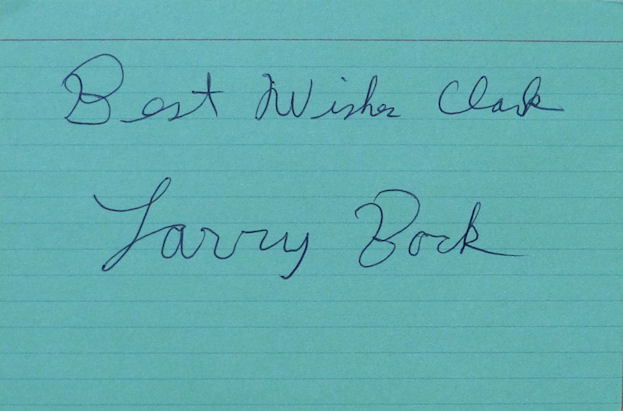 Best Wishes Clark
Larry Bock